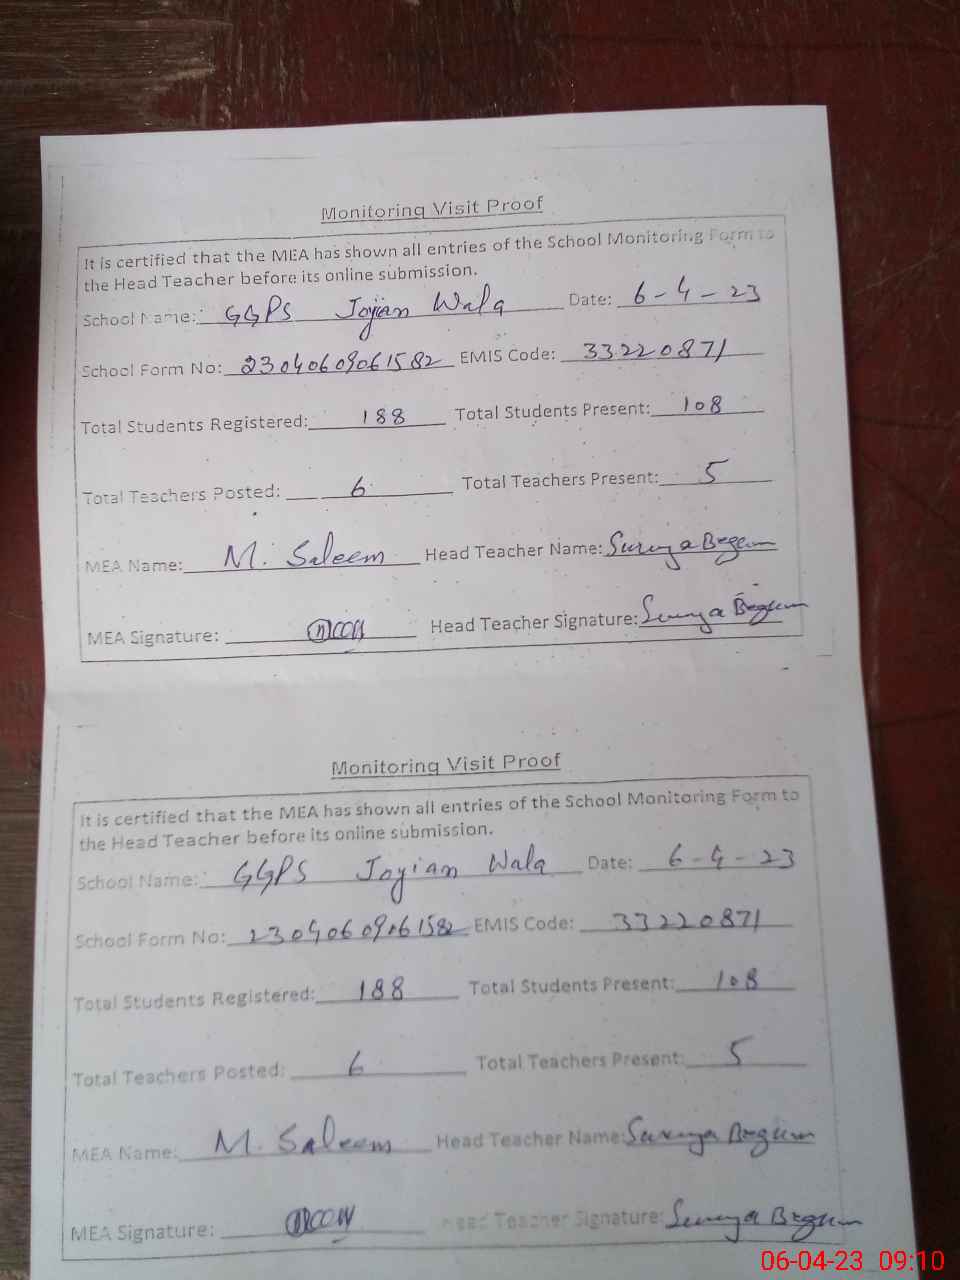 Monitoring Visit Proof
It is certified that the MEA has shown all entries of the School Monitoring Form to
the Head Teacher before its online submission.
School Name: GGPS Joyian Wala Date: 6-4-23
School Form No: 23040609061582 EMIS Code: 33220871
Total Students Registered: 188 Total Students Present: 108
Total Teachers Posted: 6 Total Teachers Present: 5
MEA Name: M. Saleem Head Teacher Name: Surya Begum
MEA Signature: Head Teacher Signature: Surya Begum
Monitoring Visit Proof
It is certified that the MEA has shown all entries of the School Monitoring Form to
the Head Teacher before its online submission.
School Name: GGPS Joyian Wala Date: 6-4-23
School Form No: 23040609061582 EMIS Code: 33220871
Total Students Registered: 188 Total Students Present: 108
Total Teachers Posted: 6 Total Teachers Present: 5
MEA Name: M. Saleem Head Teacher Name: Surya Begum
MEA Signature: Head Teacher Signature: Surya Begum
06-04-23 09:10